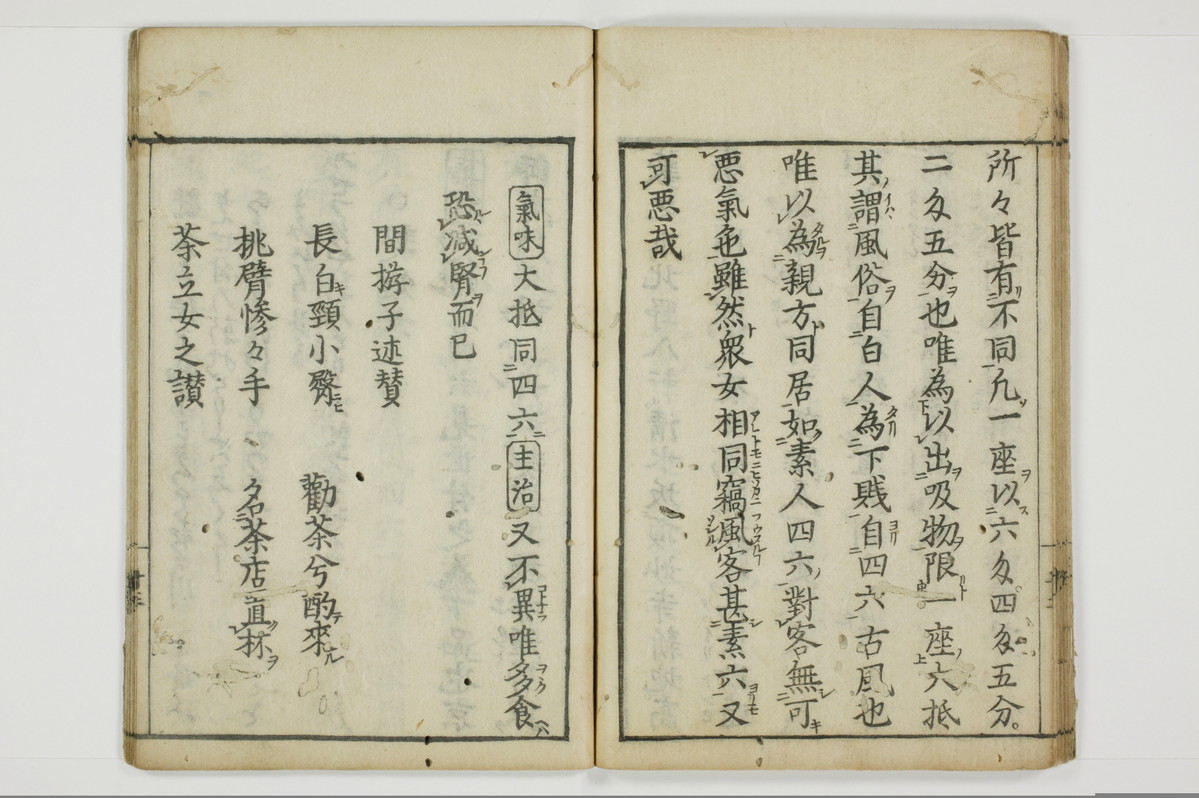 所々皆有不同凢一座以六匁四匁五分
二匁五分也唯為以出吸物限一座六抵
其謂風俗自白人為下賎自四六古風也
唯以為親方同居如素人四六對客無可
悪氣色雖然衆女相同竊風客甚素六又
可悪哉
氣味大抵同四六主治又不異唯多食
恐減腎而已
間游子述賛
長白頸小 勸茶兮酌來
挑臂惨々手 名茶店直杯
茶立女之讃